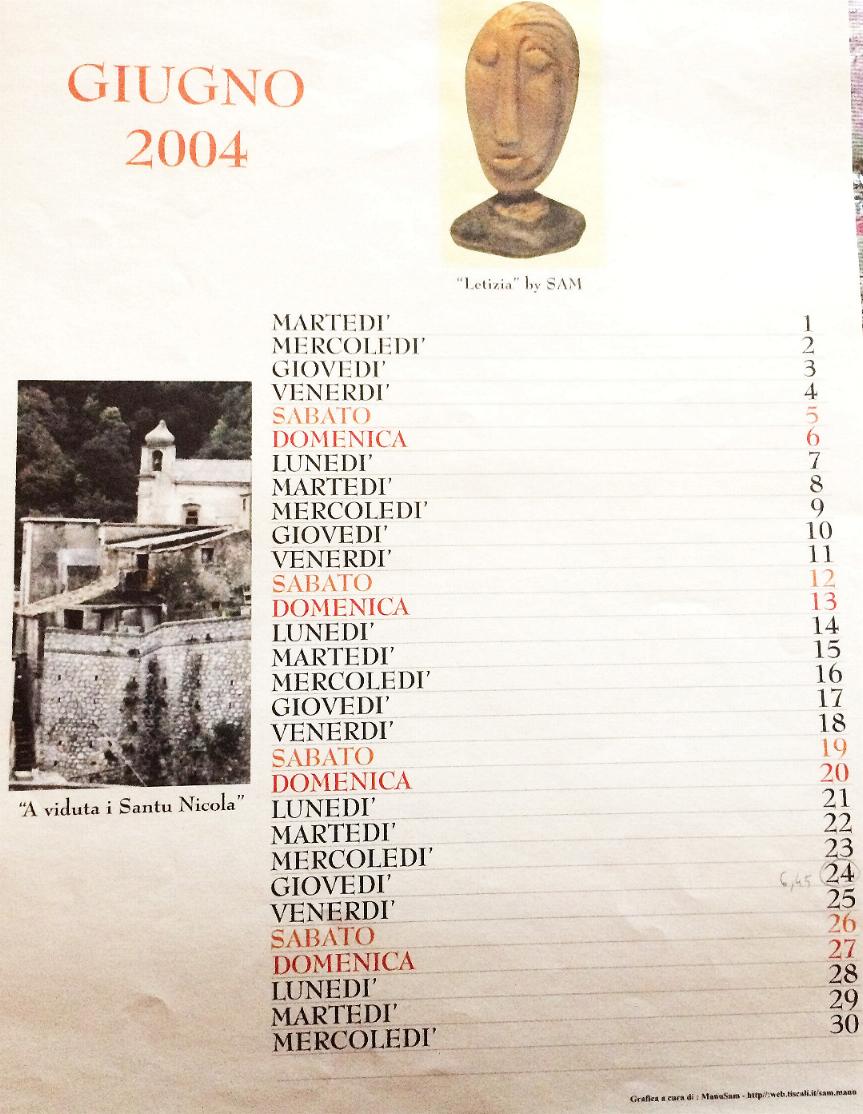 GIUGNO
2004
"Letizia" by SAM
MARTEDI' 1
MERCOLEDI' 2
GIOVEDI' 3
VENERDI' 4
SABATO 5
DOMENICA 6
LUNEDI' 7
MARTEDI' 8
MERCOLEDI' 9
GIOVEDI' 10
VENERDI' 11
SABATO 12
DOMENICA 13
LUNEDI' 14
MARTEDI' 15
MERCOLEDI' 16
GIOVEDI' 17
VENERDI' 18
SABATO 19
DOMENICA 20
LUNEDI' 21
MARTEDI' 22
MERCOLEDI' 23
GIOVEDI' 6,45 24
VENERDI' 25
SABATO 26
DOMENICA 27
LUNEDI' 28
MARTEDI' 29
MERCOLEDI' 30
"A viduta i Santu Nicola"
Grafica a cura di : ManuSam - http//:web.tiscali.it/sam.manu